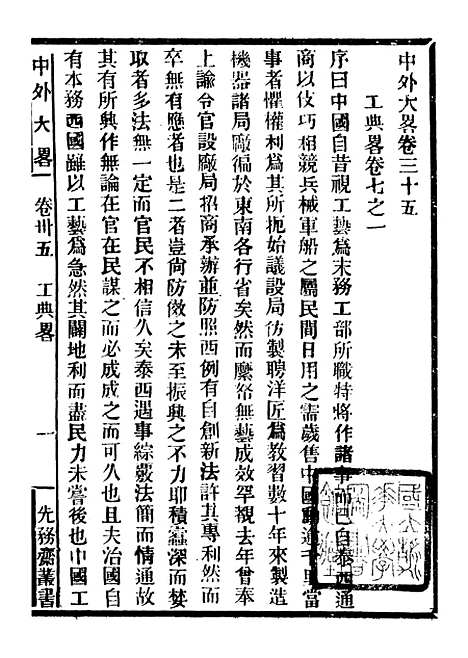 中外大畧卷三十五
工典畧卷七之一
序曰中國自昔視工藝爲末務工部所職特將作諸事而已自泰西通
商以伎巧相競兵械軍船之屬民間日用之需歲售中國動逾千里當
事者懼權利爲其所扼始議設局仿製聘洋匠爲教習數十年來製造
機器諸局廠徧於東南各行省矣然而縻帑無藝成效罕覩去年曾奉
上諭令官設廠局招商承辦並防照西例有自創新法許其專利然而
卒無有應者也是二者豈尙防儆之未至振興之不力耶積蠹深而婪
取者多法無一定而官民不相信久矣泰西遇事綜覈法簡而情通故
其有所興作無論在官在民謀之而必成成之而可久也且夫治國自
有本務西國雖以工藝爲急然其闢地利而盡民力未嘗後也中國工
中外大畧
卷卅五
工典畧
一
先務齋叢書